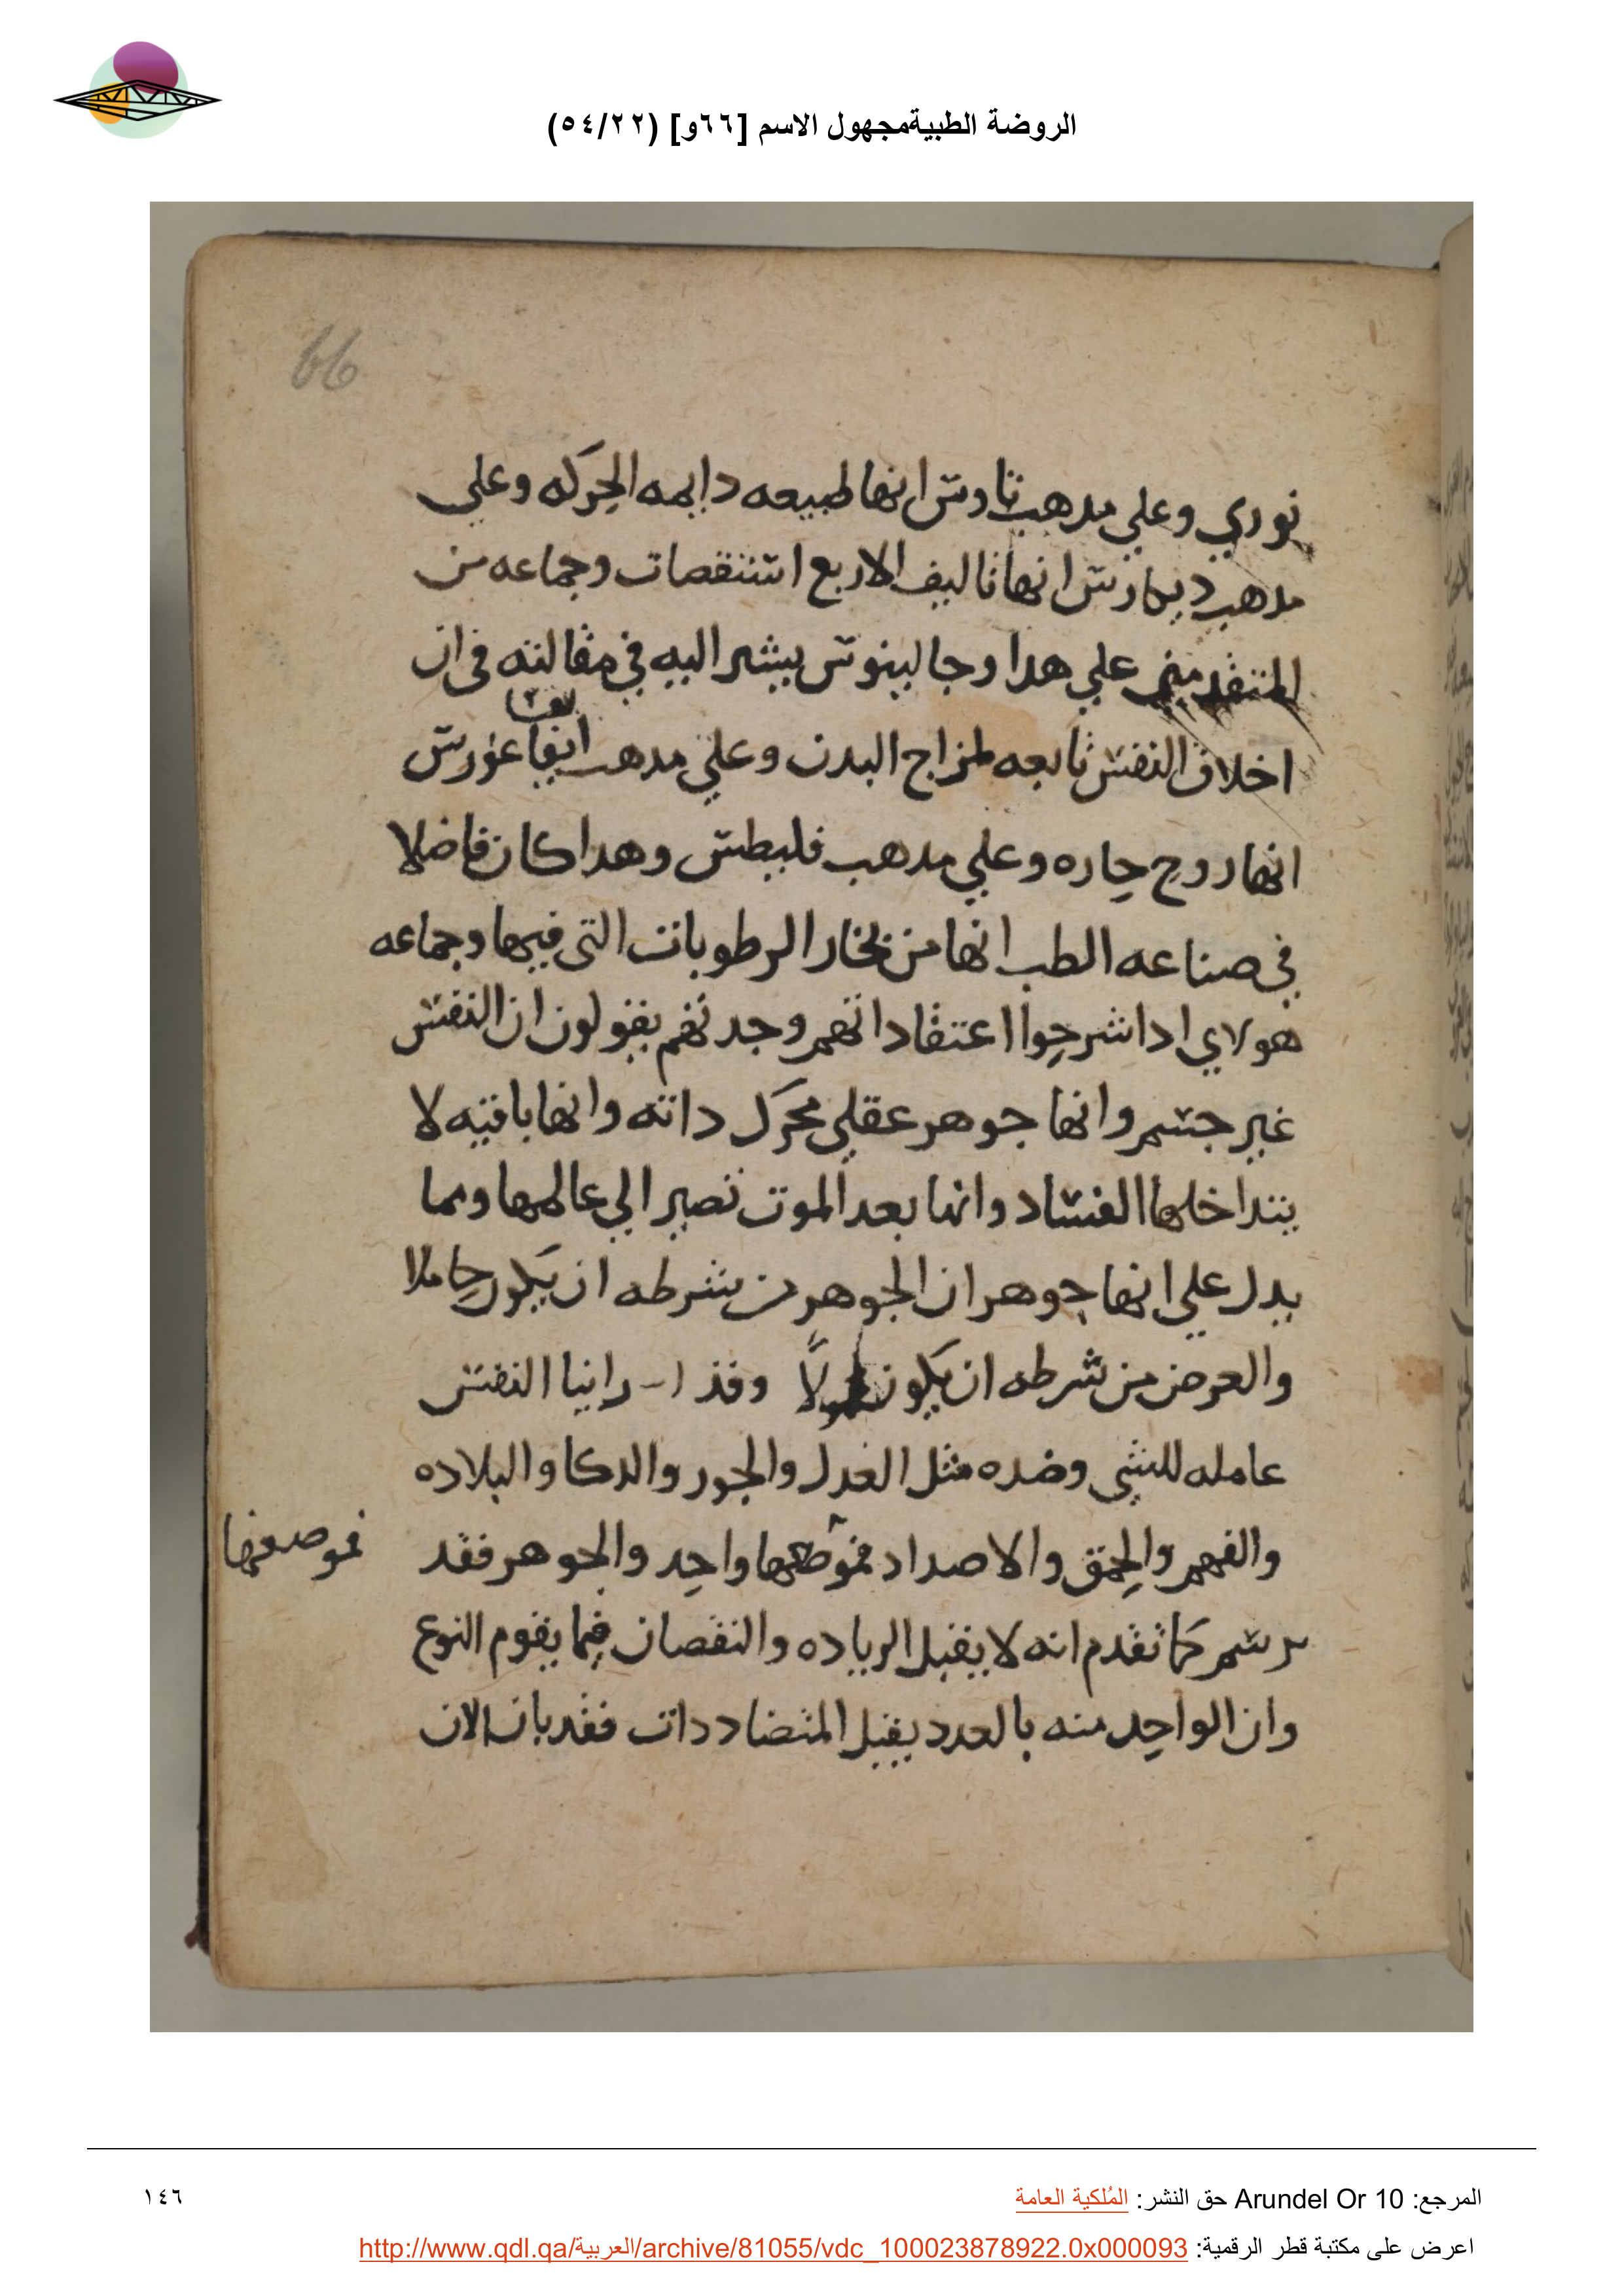 الروضة الطبيةمجهول الاسم [٦٦و] (٥٤/٢٢)
66
نوري وعلي مدهب تاوس انها طبيعه دايمه الحركه وعلي
مدهب ديمارس انها تاليف الاربع استقصات وجماعه من
المتقدمين علي هدا وجالينوس يشير اليه في مقالته في ان
اخلاق النفس تابعه لمزاج البدن وعلي مدهب ايفاغورس
انها روح حاره وعلي مدهب فليطس وهدا كان فاضلا
في صناعه الطب انها من بخار الرطوبات التي فيها وجماعه
هولاي ادا شرحوا اعتقاداتهم وجدتهم يقولون ان النفس
غير جسم وانها جوهر عقلي محرك داته وانها باقيه لا
يتداخلها الفساد وانها بعد الموت تصير الي عالمها ومما
يدل علي انها جوهر ان الجوهر من شرطه ان يكون حاملا
والعرض من شرطه ان يكون وقد راينا النفس
عامله للشي وضده مثل العدل والجور والدكا والبلاده
والفهم والحمق والاصداد فموضعها واحد والجوهر فقد
فموضعها
رسم كما تقدم انه لا يقبل الزياده والنقصان فيما يقوم النوع
وان الواحد منه بالعدد يقبل المتضاددات فقد بان الان
المرجع: Arundel Or 10 حق النشر: المُلكية العامة
١٤٦
اعرض على مكتبة قطر الرقمية: http://www.qdl.qa/العربية/archive/81055/vdc_100023878922.0x000093